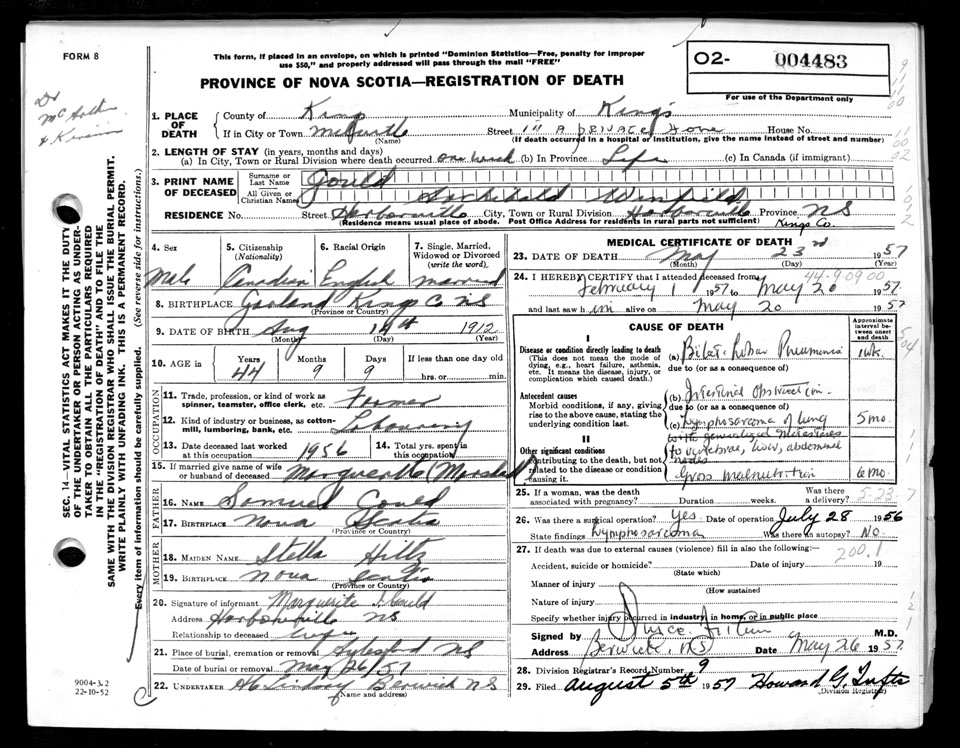 FORM 8
This form, if placed in an envelope, on which is printed "Dominion Statistics—Free, penalty for improper
use $50," and properly addressed will pass through the mail "FREE"
O2- 004483
PROVINCE OF NOVA SCOTIA—REGISTRATION OF DEATH
For use of the Department only
Dr
1. PLACE OF DEATH
County of Kings Municipality of Kings
If in City or Town Street in A private Home House No.
(Name) (If death occurred in a hospital or institution, give the name instead of street and number)
2. LENGTH OF STAY (in years, months and days)
(a) In City, Town or Rural Division where death occurred one week (b) In Province Life (c) In Canada (if immigrant)
3. PRINT NAME OF DECEASED
Surname or Last Name Gould
All Given or Christian Names Archibald Winfield
RESIDENCE No. Street Harborville City, Town or Rural Division Harborville Province NS
(Residence means usual place of abode. Post Office Address for residents in rural parts not sufficient) Kings Co.
4. Sex Male
5. Citizenship (Nationality) Canadian
6. Racial Origin English
7. Single, Married, Widowed or Divorced (write the word) married
8. BIRTHPLACE Garland Kings C. NS
(Province or Country)
9. DATE OF BIRTH Aug 14th 1912
(Month) (Day) (Year)
10. AGE in Years 44 Months 9 Days 9 If less than one day old hrs. or min.
OCCUPATION
11. Trade, profession, or kind of work as spinner, teamster, office clerk, etc. Farmer
12. Kind of industry or business, as cotton-mill, lumbering, bank, etc. Labouring
13. Date deceased last worked at this occupation 1956
14. Total yrs. spent in this occupation
15. If married give name of wife or husband of deceased Marguerite (Marshall)
FATHER
16. NAME Samuel Gould
17. BIRTHPLACE Nova Scotia
MOTHER
18. MAIDEN NAME Stella Hiltz
19. BIRTHPLACE Nova Scotia
(Province or Country)
20. Signature of informant Marguerite J. Gould
Address Harborville NS
Relationship to deceased wife
21. Place of burial, cremation or removal Aylesford NS
Date of burial or removal May 26/57
22. UNDERTAKER Lindsay Berwick NS
(Name and address)
MEDICAL CERTIFICATE OF DEATH
23. DATE OF DEATH May 23rd 1957
(Month) (Day) (Year)
44-9-09 00
24. I HEREBY CERTIFY that I attended deceased from
February 1 1957 to May 20 1957
and last saw him alive on May 20 1957
CAUSE OF DEATH
Approximate interval between onset and death
I
Disease or condition directly leading to death (a) Bilat. Lobar Pneumonia 1 wk.
(This does not mean the mode of dying, e.g., heart failure, asthenia, etc. It means the disease, injury, or complication which caused death.) due to (or as a consequence of)
Antecedent causes (b) Intestinal Obstruction
Morbid conditions, if any, giving rise to the above cause, stating the underlying condition last. due to (or as a consequence of)
(c) Lymphosarcoma of lung 5 mo.
with generalized Metastases
to vertebrae, liver, abdominal
nodes
II
Other significant conditions
Contributing to the death, but not related to the disease or condition causing it. Gross malnutrition 6 mo.
25. If a woman, was the death associated with pregnancy? Duration weeks. Was there a delivery? 5-23-
26. Was there a surgical operation? Yes Date of operation July 28 1956
State findings Lymphosarcoma Was there an autopsy? No
27. If death was due to external causes (violence) fill in also the following:—
200.1
Accident, suicide or homicide? Date of injury 19
(State which)
Manner of injury
(How sustained
Nature of injury
Specify whether injury occurred in industry, in home, or in public place
Signed by M.D.
Address Berwick, NS Date May 26 1957
28. Division Registrar's Record Number 9
29. Filed August 5th 1957 Howard G. Tufts
(Division Registrar)
SEC. 14—VITAL STATISTICS ACT MAKES IT THE DUTY
OF THE UNDERTAKER OR PERSON ACTING AS UNDER-
TAKER TO OBTAIN ALL THE PARTICULARS REQUIRED
IN THE "REGISTRATION OF DEATH" AND TO FILE THE
SAME WITH THE DIVISION REGISTRAR WHO SHALL ISSUE THE BURIAL PERMIT.
WRITE PLAINLY WITH UNFADING INK. THIS IS A PERMANENT RECORD.
Every item of information should be carefully supplied. (See reverse side for instructions.)
9004-3.2
22-10-52